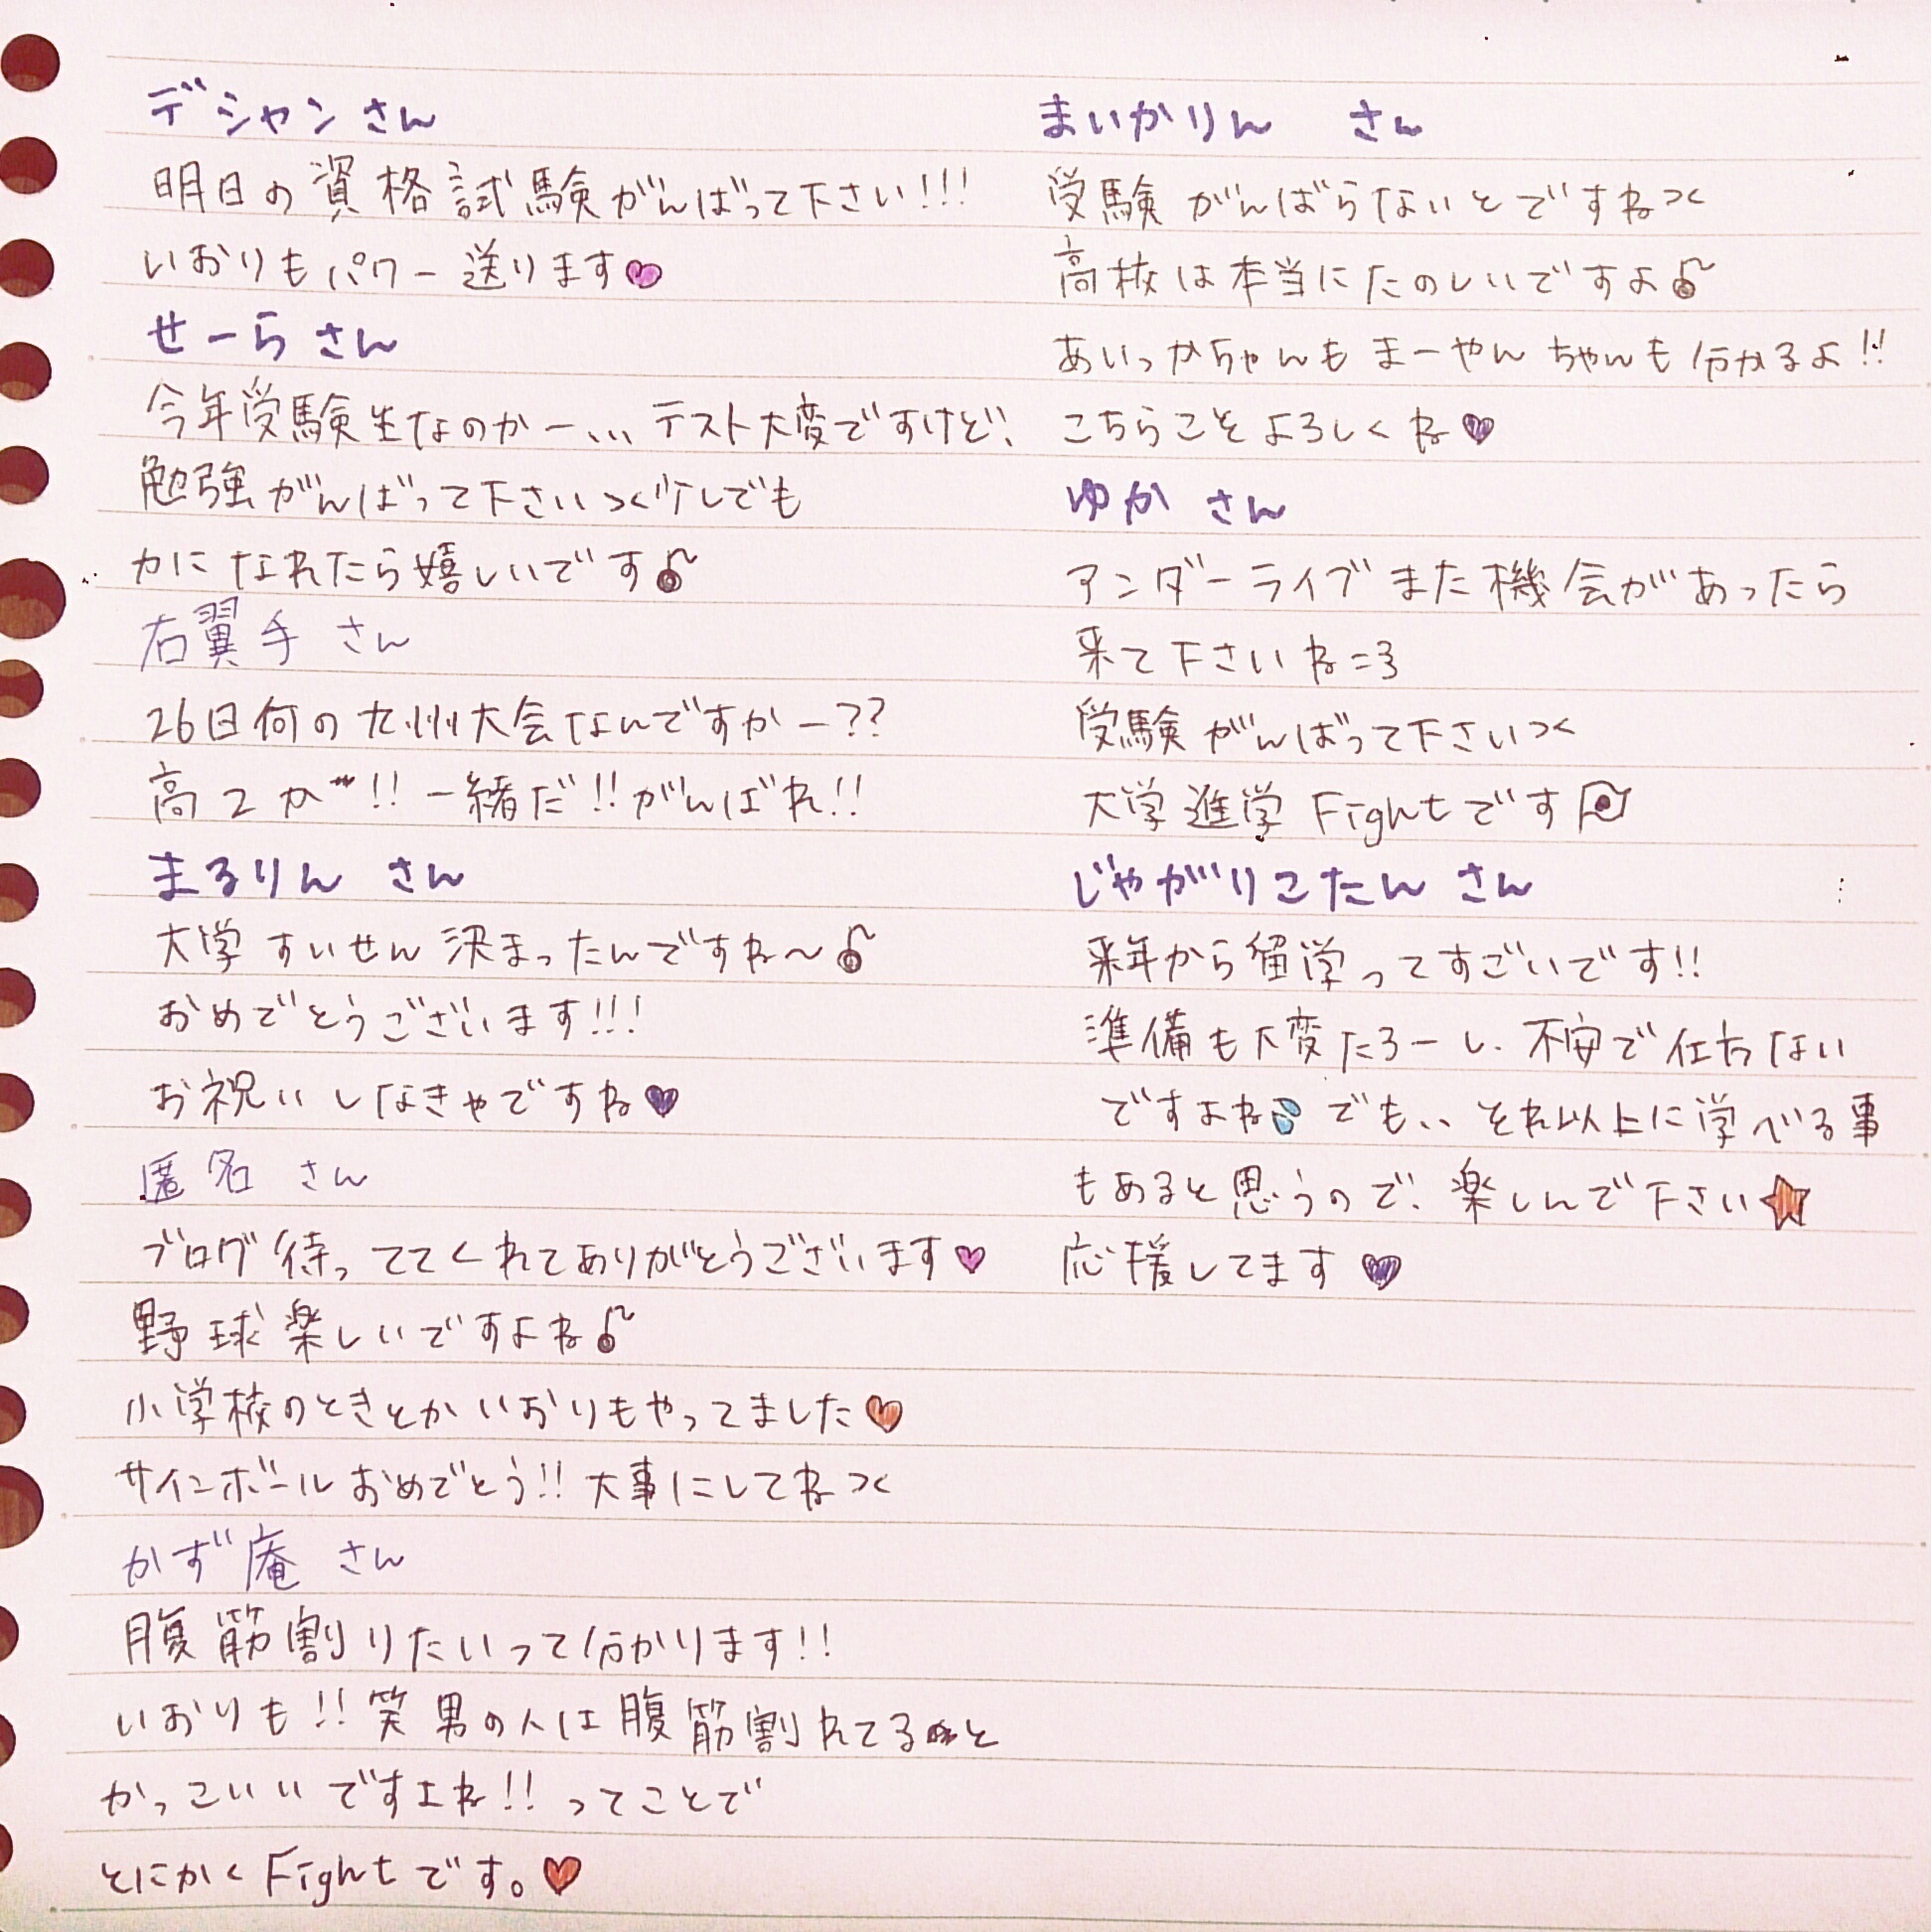 デシャンさん
明日の資格試験がんばって下さい!!!
いおりもパワー送ります♥
せーらさん
今年受験生なのかー、、、テスト大変ですけど、
勉強がんばって下さい>< 少しでも
力になれたら嬉しいです♪
右翼手さん
26日何の九州大会なんですかー??
高2か〜!!一緒だ!!がんばれ!!
まるりん さん
大学すいせん決まったんですね〜♪
おめでとうございます!!!
お祝いしなきゃですね♥
匿名 さん
ブログ待っててくれてありがとうございます♥
野球楽しいですよね♪
小学校のときとかいおりもやってました♥
サインボールおめでとう!!大事にしてね><
かず庵 さん
腹筋割りたいって分かります!!
いおりも!!笑 男の人は腹筋割れてると
かっこいいですよね!!ってことで
とにかくFightです。♥
まいかりん さん
受験がんばらないとですね><
高校は本当にたのしいですよ♪
あいっかちゃんもまーやんちゃんも分かるよ!!
こちらこそよろしくね♥
ゆか さん
アンダーライブまた機会があったら
来て下さいね=3
受験がんばって下さい><
大学進学Fightです
じゃがりこたん さん
来年から留学ってすごいです!!
準備も大変だろーし、不安で仕方ない
ですよね でも、、それ以上に学べる事
もあると思うので、楽しんで下さい★
応援してます♥